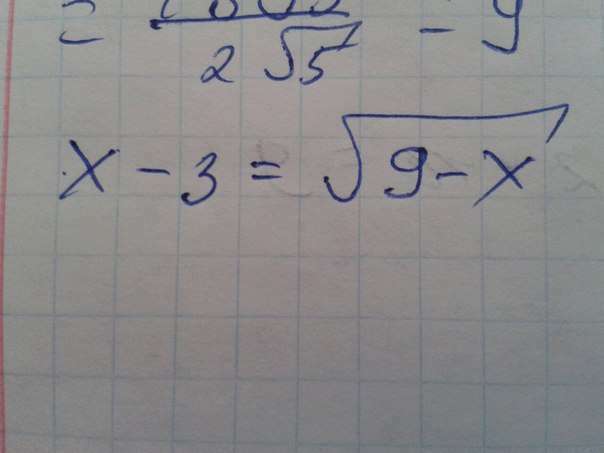 = / 2√5 - 9
x - 3 = √9-x